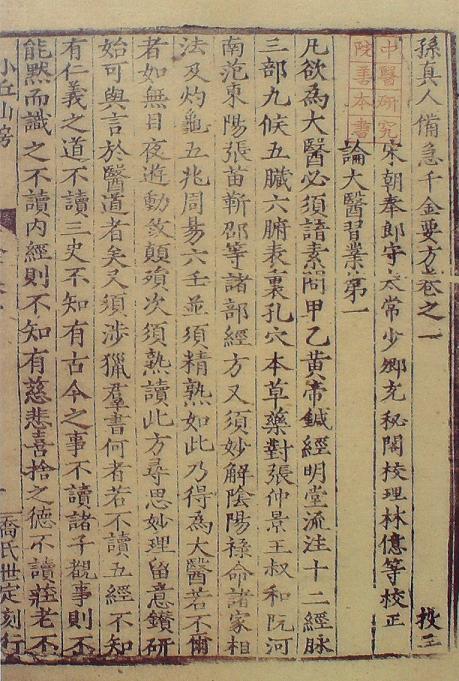 孫真人備急千金要方卷之一
宋朝奉郎守太常少卿充秘閣校理林億等校正
論大醫習業第一
凡欲為大醫必須諳素問甲乙黃帝鍼經明堂流注十二經脉
三部九候五臟六腑表裏孔穴本草藥對張仲景王叔和阮河
南范東陽張苗靳邵等諸部經方又須妙解陰陽祿命諸家相
法及灼龜五兆周易六壬並須精熟如此乃得為大醫若不爾
者如無目夜遊動致顛殞次須熟讀此方尋思妙理留意鑽研
始可與言於醫道者矣又須涉獵羣書何者若不讀五經不知
有仁義之道不讀三史不知有古今之事不讀諸子覩事則不
能黙而識之不讀内經則不知有慈悲喜捨之德不讀莊老不
中醫研究
院善本書
小丘山房
喬氏世定刻行